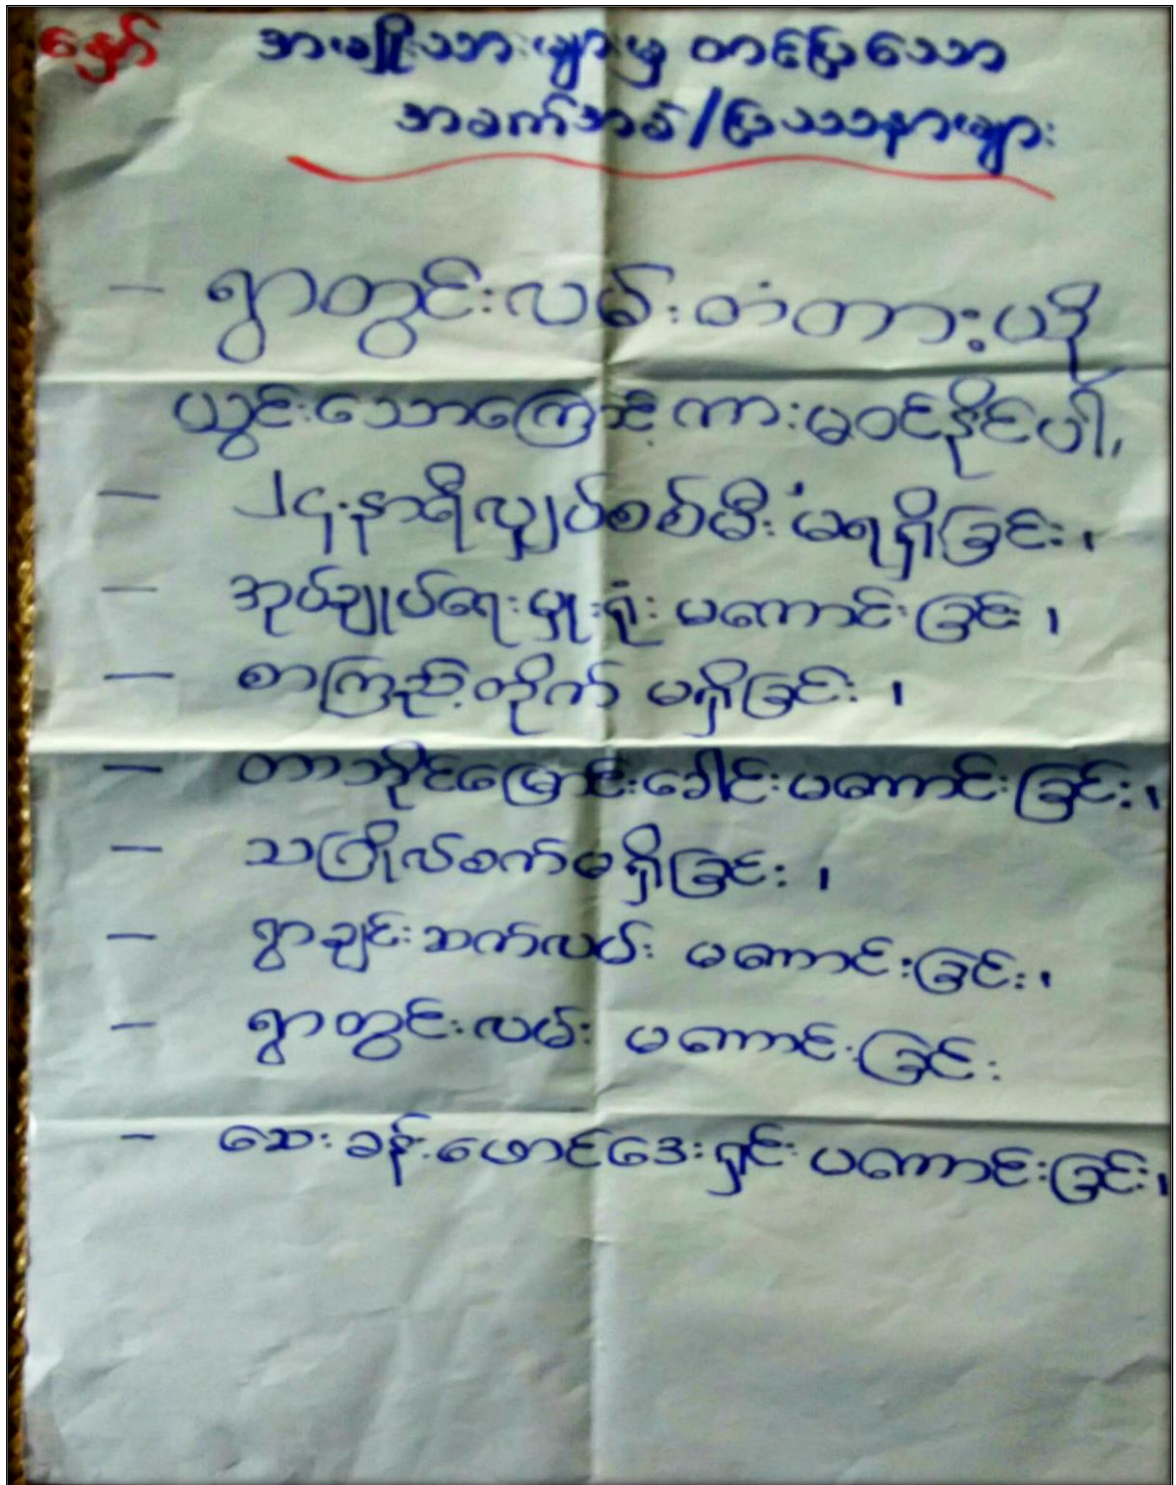 နှော် အမျိုးသားများမှ တင်ပြသော
အခက်အခဲ/ပြဿနာများ
- ရွာတွင်းလမ်းတံတားယို
ယွင်းသောကြောင့်ကားမဝင်နိုင်ပါ,
- ၂၄.နာရီလျှပ်စစ်မီးမရရှိခြင်း၊
- အုပ်ချုပ်ရေးမှုးရုံးမကောင်းခြင်း၊
- စာကြည့်တိုက် မရှိခြင်း၊
- တာဘိုင်မြောင်းခေါင်းမကောင်းခြင်း၊
- သကြိုလ်စက်မရှိခြင်း၊
- ရွာချင်းဆက်လမ်း မကောင်းခြင်း၊
- ရွာတွင်းလမ်း မကောင်းခြင်း
- ဆေးခန်းဖောင်ဒေးရှင်းမကောင်းခြင်း၊